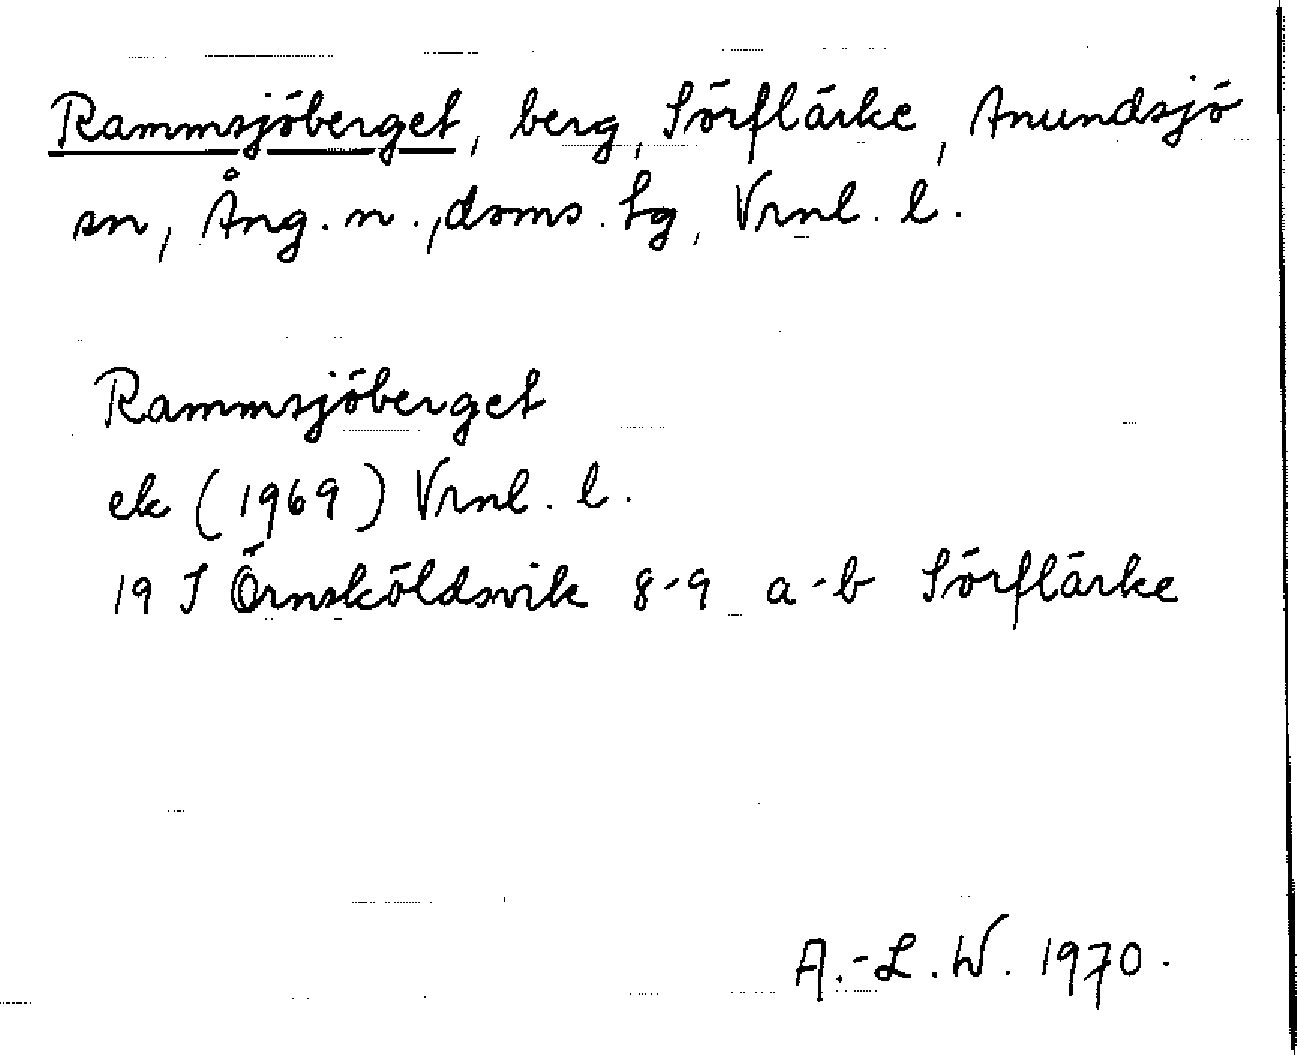 Rammsjöberget, berg, Sörflärke, Anundsjö
sn, Ång. n., doms. hg, Vrnl. l.
Rammsjöberget
ek (1969) Vrnl. l.
19 J Örnsköldsvik 8-9 a-b Sörflärke
A.-L. W. 1970.